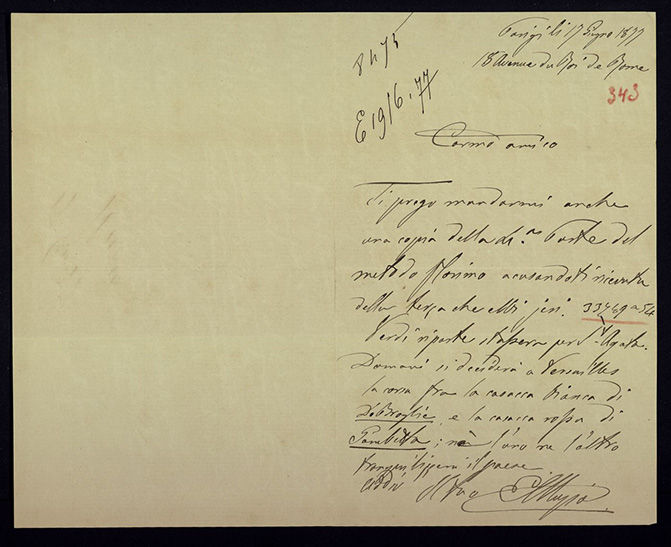 Parigi li 17 Giugno 1877
13 Avenue du Roi de Rome
343
E 19/6. 77
Carmo amico
Ti prego mandarmi anche
una copia della 4.a Parte del
metodo Florimo accusandoti ricevuta
della terza che ebbi jeri. 33769 a 54
Verdi riparte stasera per St Agata.
Domani si deciderà a Versailles
la corsa fra la casacca bianca di
De Broglie e la casacca rossa di
Gambetta; nè l'uno ne l'altro
il paese
Addio
Il tuo EMuzio